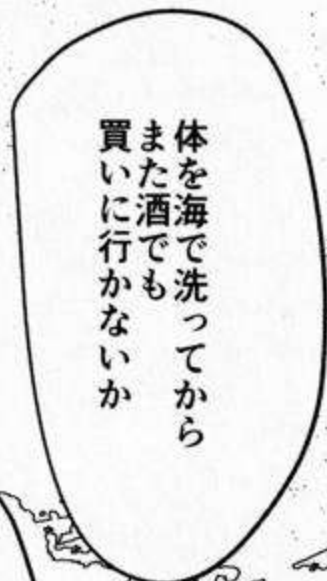 体を海で洗ってから
また酒でも
買いに行かないか